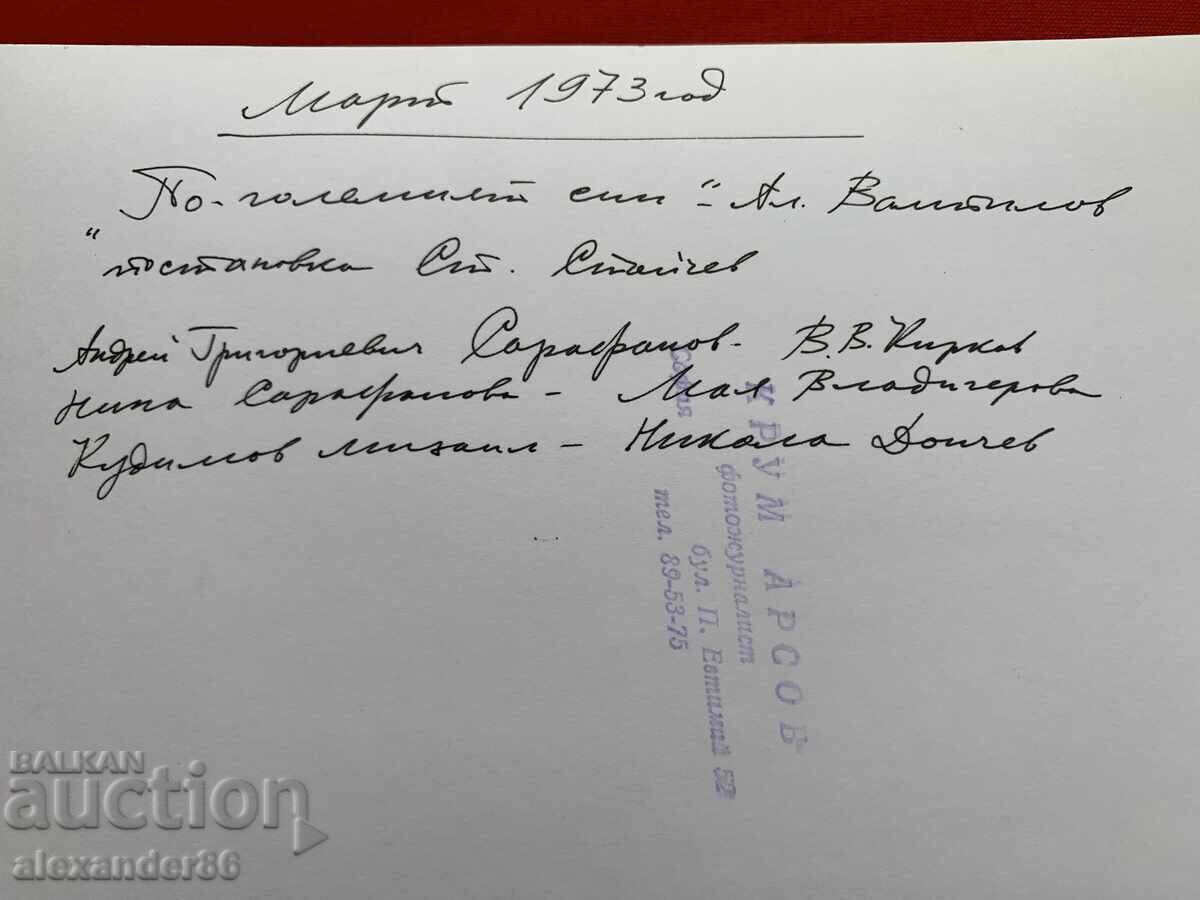 Март 1973 год
"По-големият син" - Ал. Вампилов
постановка Ст. Стайчев
Андрей Григориевич Сарафанов - В.В. Кирков
Нина Сарафанова - Мая Владигерова
Кудимов Михаил - Никола Дойчев
КРУМ АРСОВ
фотожурналист
бул. П. Евтимий 52
тел. 89-53-75
София
BALKAN
auction
alexander86